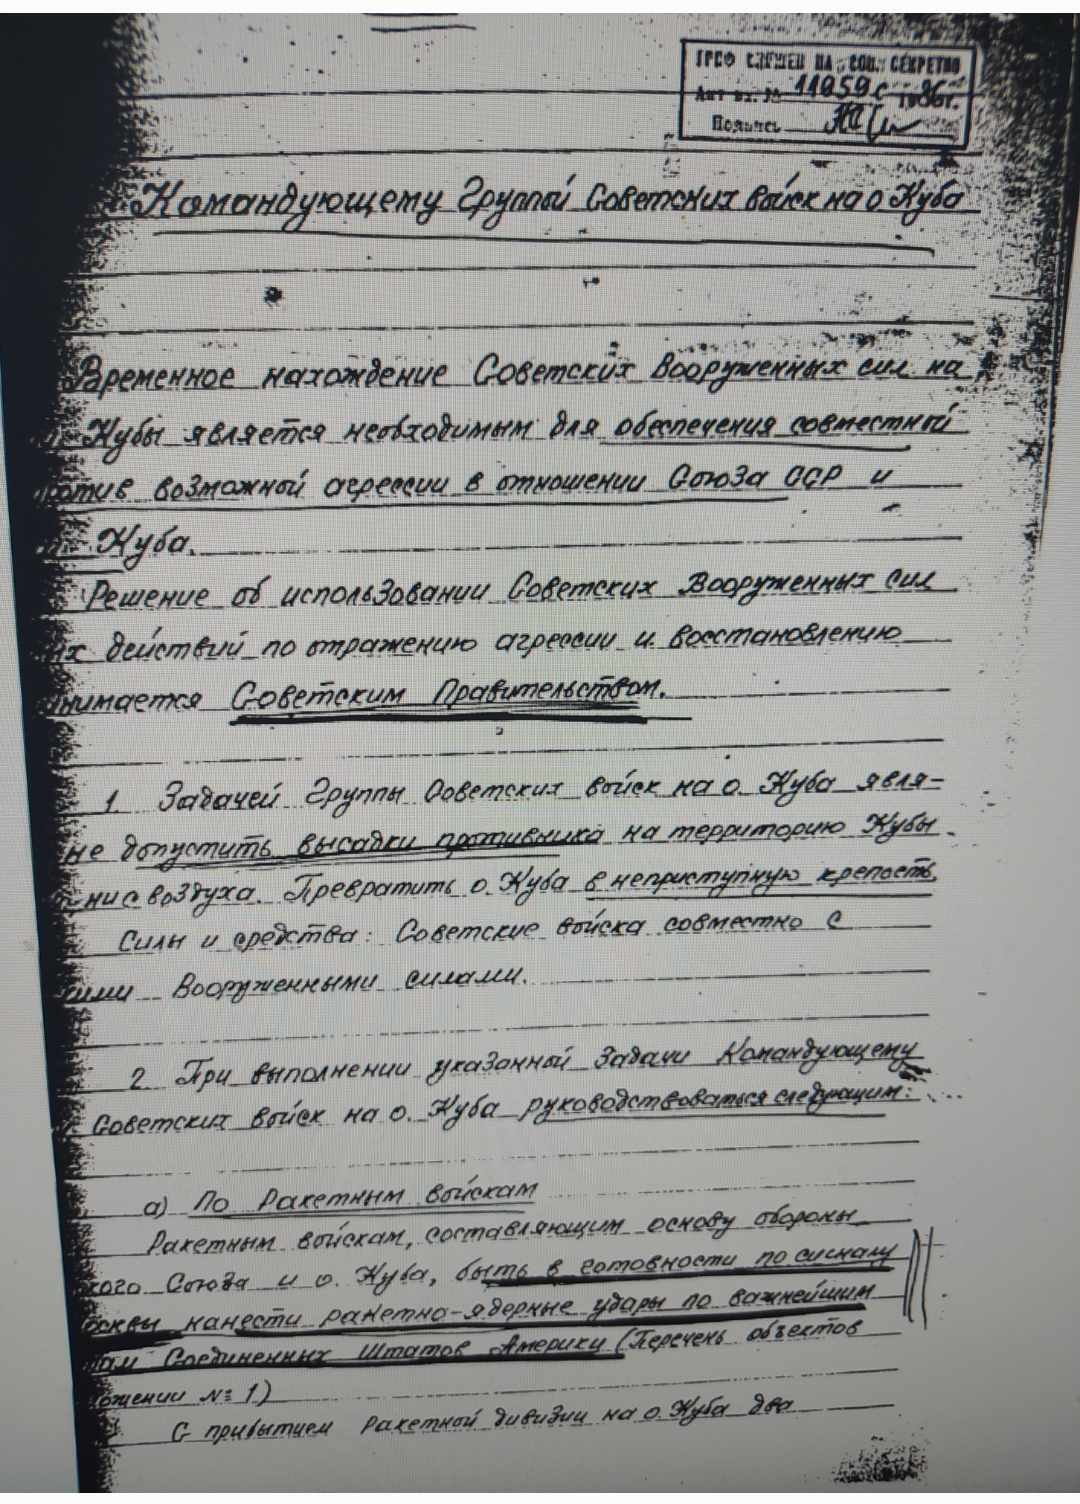 ГРИФ СЕКРЕТНО
11959с 1986г.
Подпись
Командующему Группой Советских войск на о Куба
Временное нахождение Советских Вооруженных сил на
Кубы является необходимым для обеспечения совместной
против возможной агрессии в отношении Союза ССР и
Куба.
Решение об использовании Советских Вооруженных сил
их действий по отражению агрессии и восстановлению
нимается Советским Правительством.
1. Задачей Группы Советских войск на о. Куба явля-
не допустить высадки противника на территорию Кубы
ни с воздуха. Превратить о. Куба в неприступную крепость.
Силы и средства: Советские войска совместно с
ими Вооруженными силами.
2. При выполнении указанный задачи Командующему
Советских войск на о. Куба руководствоваться следующим:
а) По Ракетным войскам
Ракетным войскам, составляющим основу обороны
кого Союза и о. Куба, быть в готовности по сигналу
осквы нанести ракетно-ядерные удары по важнейшим
там Соединенных Штатов Америки (Перечень объектов
ожении № 1)
С прибытием Ракетной дивизии на о. Куба два